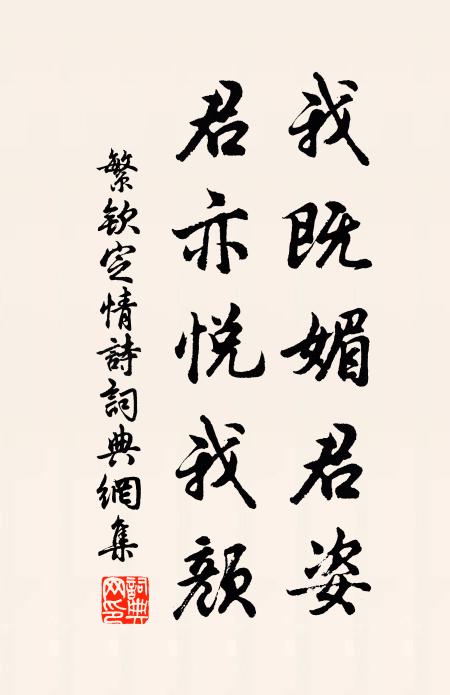 我既媚君姿
君亦悦我颜
繁欽定情詩詞典網集
詞典網印